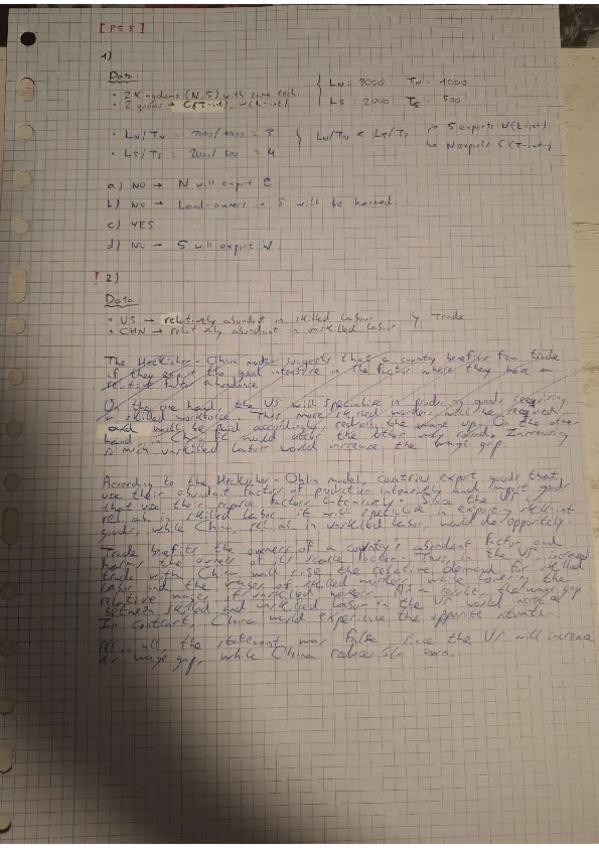 [PS 5]
1)
Data:
• 2 Kingdoms (N, S) with same tech.
• 2 goods → C(T-int), W(L-int)
LN = 3000 TN = 1000
LS = 2000 TS = 500
• LN/TN = 3000/1000 = 3
• LS/TS = 2000/500 = 4
LN/TN < LS/TS
→ S exports W(L-int)
↳ N exports C(T-int)
a) NO → N will export C
b) NO → Land-owners in S will be harmed.
c) YES
d) NO → S will export W
! 2)
Data:
• US → relatively abundant in skilled labour
• CHN → relatively abundant in unskilled labour
Trade
The Heckscher-Ohlin model suggests that a country benefits from trade
if they export the good intensive in the factor where they have a
relative factor abundance
On the one hand, the US will specialise in producing goods requiring
a skilled workforce. Thus more skilled workers will be required
and will be paid accordingly, the wage up. On the other
hand in China it would occur the other way round. Increasing
so much unskilled labour would increase the wage gap.
According to the Heckscher-Ohlin model, countries export goods that
use their abundant factor of production intensively and import goods
that use their scarce factors intensively. Since the US is
rel. ab. in skilled labor, it will specialise in exporting skill-int
goods, while China, rel. ab. in unskilled labor, would do oppositely.
Trade benefits the owners of a country's abundant factor and
harms the owners of its scarce factor. Thus, in the US, increased
trade with China will rise the relative demand for skilled
labor and the wages of skilled workers, while lowering the
relative wages of unskilled workers. As a result, the wage gap
between skilled and unskilled labour in the US would increase
In contrast, China would experience the opposite situation.
All in all, the statement was false since the US will increase
its wage gap, while China reduces its own.